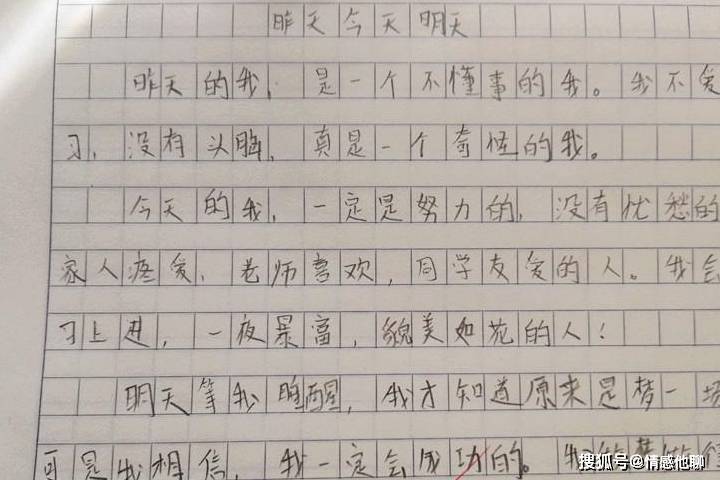 昨天今天明天
昨天的我,是一个不懂事的我。我不爱
习,没有头脑,真是一个奇怪的我。
今天的我,一定是努力的,没有忧愁的
家人疼爱、老师喜欢,同学友爱的人。我会
习上进,一夜暴富,貌美如花的人!
明天等我睡醒,我才知道原来是梦一场
可是我相信,我一定会成功的。我的梦
搜狐号@情感他聊